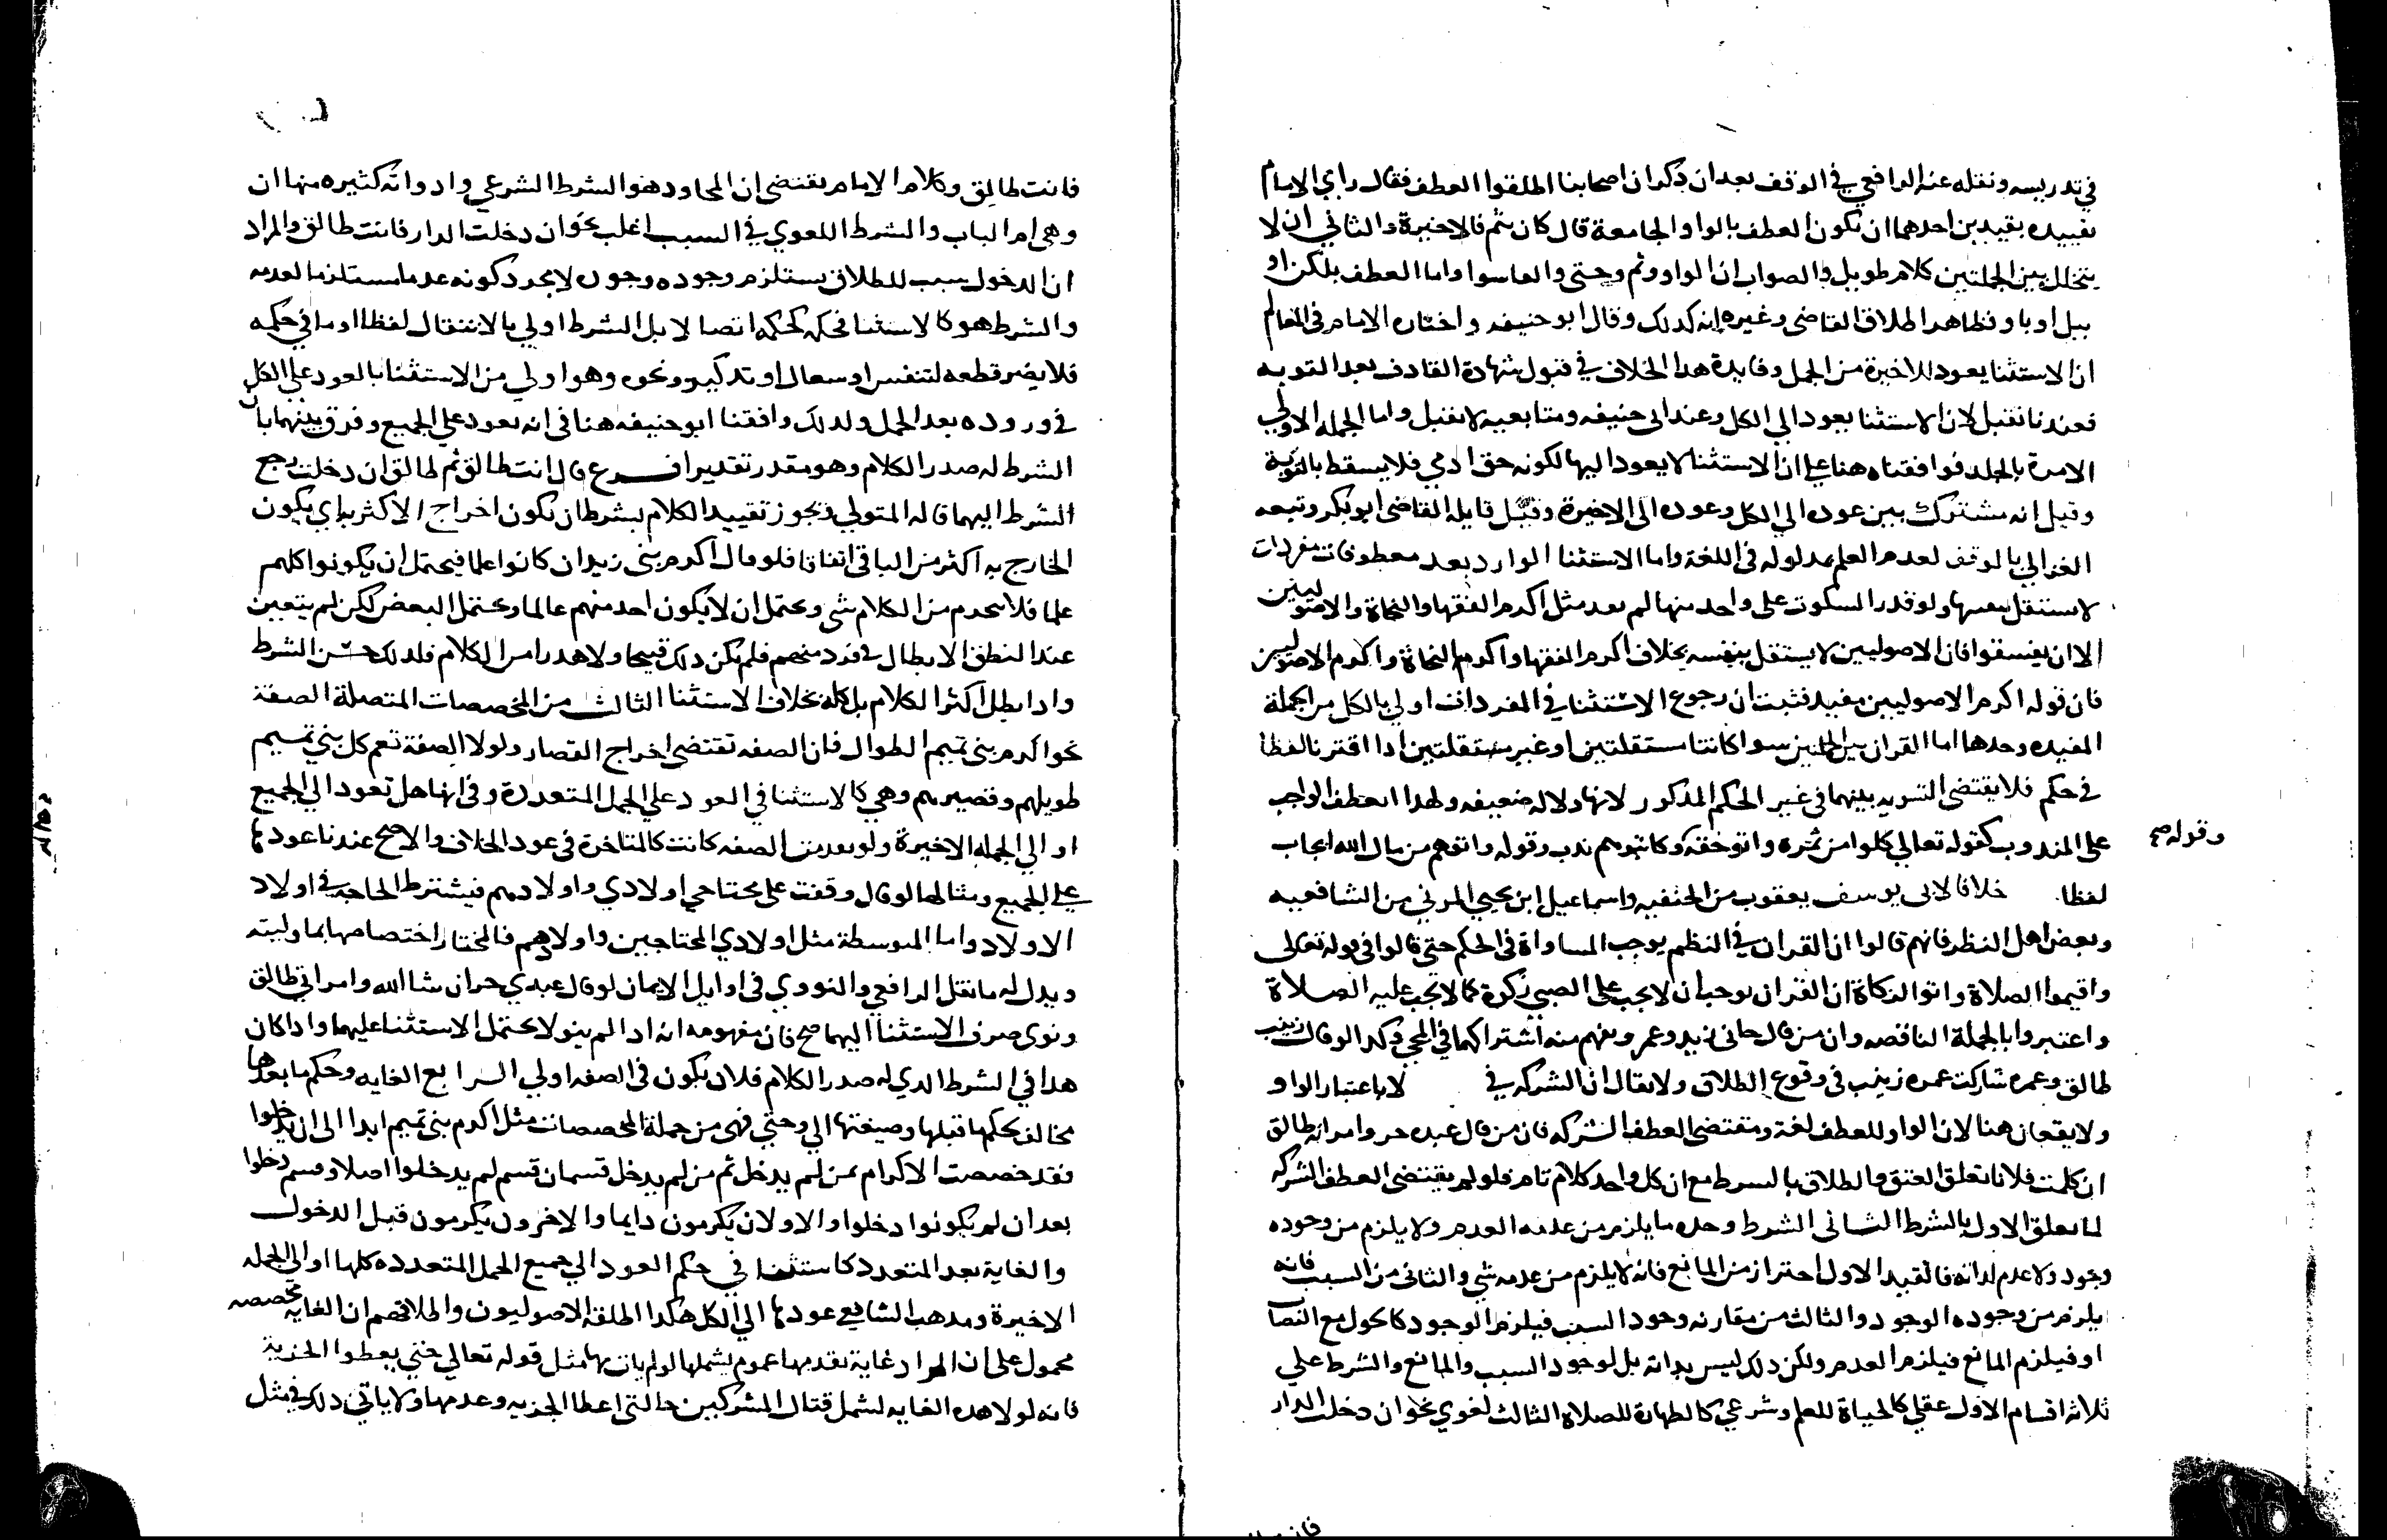 في تدريسه ونقله عنه الرافعي في الوقف بعد ان ذكر ان اصحابنا اطلقوا العطف فقال راي الامام
تقييده بقيدين احدهما ان تكون العطف بالواو الجامعة قال كان بثم فالاخيرة والثاني ان لا
يتخلل بين الجملتين كلام طويل والصواب ان الواو وثم وحتى والفا سوا واما العطف بلكن او
ببل او باو فظاهر اطلاق القاضي وغيره انه كدلك وقال ابو حنيفه واختاره الامام في المعالم
ان الاستثنا يعود للاخيرة من الجمل وفايدة هدا الخلاف في قبول شهادة القادف بعد التوبه
فعندنا تقبل لان الاستثنا يعود الي الكل وعند ابى حنيفه ومتابعيه لا تقبل واما الجمله الاولي
الامرة بالجلد فوافقناه هنا علي ان الاستثنا لا يعود اليها لكونه حق ادمي فلا يسقط بالتوبة
وقيل انه مشترك بين عوده الي الكل وعوده الى الاخيرة وقيل قايله القاضى ابو بكر وتبعه
الغزالي بالوقف لعدم العلم بمدلوله في اللغة واما الاستثنا الوارد بعد معطوفات مفردات
لا ستقل بنفسها ولو قدر السكوت على واحد منها لم يعد مثل اكرم الفقها والنحاة والاصوليين
الا ان يفسقوا فان الاصوليين لا يستقل بنفسه بخلاف اكرم الفقها واكرم النحاة واكرم الاصوليين
فان قوله اكرم الاصوليين مفيد فثبت ان رجوع الاستثنا في المفردات اولي بالكل من الجملة
المفيده وحدها اما القران بين الجملتين سوا كانتا مستقلتين او غير مستقلتين ادا اقترنا لفظا
في حكم فلا يقتضى التسويه بينهما في غير الحكم المذكور لانها دلاله ضعيفه ولهدا انعطف الواجب
على المندوب كقوله تعالي كلوا من ثمره واتو حقه وكاتبوهم ندب وقوله واتوهم من مال الله ايجاب
وقوله صح
لفظا خلافا لابى يوسف يعقوب من الحنفيه واسماعيل ابن يحيي المزني من الشافعيه
وبعض اهل النظر فانهم قالوا ان القران في النظم يوجب المساواة في الحكم حتى قالوا في قوله تعالى
واقيموا الصلاة واتوا الزكاة ان القران يوجب ان لا يجب على الصبي زكوة كما لا تجب عليه الصلاة
واعتبروا بالجملة الناقصه وان من قال جاني زيد وعمرو يفهم منه اشتراكهما في المجي وكدا لو قال زينب
طالق وعمره شاركت عمره زينب في وقوع الطلاق ولا يقال ان الشركه في لا باعتبار الواو
ولا يقعان هنا لان الواو للعطف لغة ومقتضى العطف الشركه فان من قال عبده حر وامراته طالق
ان كلمت فلانا تعلق العتق والطلاق بالشرط مع ان كل واحد كلام تام فلو لم يقتضى العطف الشركه
لما تعلق الاول بالشرط الثانى الشرط وحده ما يلزم من عدمه العدم ولا يلزم من وجوده
وجود ولا عدم لداته فالقيد الاول احتراز من المانع فانه لا يلزم من عدمه شي والثانى من السبب فانه
يلزم من وجوده الوجود والثالث من مقارنه وجود السبب فيلزم الوجود كالحول مع النصاب
او فيلزم المانع فيلزم العدم ولكن دلك ليس بداته بل لوجود السبب والمانع والشرط علي
ثلاثه اقسام الاول عقلي كالحياة للعلم وشرعي كالطهارة للصلاة الثالث لغوي نحو ان دخلت الدار
فانت طالق وكلام الامام يقتضى ان المحدود هنا هو الشرط الشرعي وادواته كثيره منها ان
وهي ام الباب والشرط اللغوي في السبب اغلب نحو ان دخلت الدار فانت طالق والمراد
ان الدخول سبب للطلاق يستلزم وجوده وجوده لا مجرد كونه عدما مستلزما لعدمه
والشرط هو كالاستثنا فحكمه كحكمه اتصالا بل الشرط اولي بالاتصال لفظا او ما في حكمه
فلا يضر قطعه لتنفس او سعال او تدكير ونحوه وهو اولي من الاستثنا بالعود علي الكل
في وروده بعد الجمل ولدلك وافقنا ابو حنيفه هنا في انه يعود علي الجميع وفرق بينهما بان
الشرط له صدر الكلام وهو مقدر تقديرا فرع قال انت طالق ثم طالق ان دخلت رجع
الشرط اليهما قاله المتولي وتجوز تقييد الكلام بشرط ان تكون اخراج الاكثر به اي يكون
الخارج به اكثر من الباقي اتفاقا فلو قال اكرم بنى زيد ان كانوا علما فيحتمل ان يكونوا كلهم
علما فلا يخرج من الكلام شي ويحتمل ان لا يكون احد منهم عالما ويحتمل البعض لكن لم يتعين
عند النطق الابطال في فرد منهم فلم يكن دلك قبيحا ولا هدرا من الكلام فلدلك حسن الشرط
وادا بطل اكثر الكلام بل كله بخلاف الاستثنا الثالث من المخصصات المتصلة الصفة
نحو اكرم بنى تميم الطوال فان الصفه تقتضى اخراج القصار ولولا الصفة تعم كل بني تميم
طويلهم وقصيرهم وهي كالاستثنا في العود علي الجمل المتعددة وفي انها هل تعود الي الجميع
او الي الجمله الاخيرة ولو تقدمت الصفه كانت كالمتاخرة في عود الخلاف والاصح عندنا عودها
علي الجميع ومثالهما لو قال وقفت على محتاجي اولادي واولادهم فيشترط الحاجه في اولاد
الاولاد واما المتوسطة مثل اولادي المحتاجين واولادهم فالمختار اختصاصها بما وليته
ويدل له ما نقل الرافعي والنووي في اوايل الايمان لو قال عبدي حر ان شا الله وامراتي طالق
ونوى صرف الاستثنا اليهما صح فان مفهومه انه ادا لم ينو لا يحتمل الاستثنا عليهما وادا كان
هدا في الشرط الدي له صدر الكلام فلان يكون في الصفه اولي الرابع الغايه وحكم ما بعدها
مخالف لحكم ما قبلها وصيغتها الي وحتي فهى من جملة المخصصات مثل اكرم بنى تميم ابدا الى ان يدخلوا
فقد خصصت الاكرام بمن لم يدخل ثم من لم يدخل قسمان قسم لم يدخلوا اصلا وقسم دخلوا
بعد ان لم يكونوا دخلوا والاولان يكرمون دايما والاخرون يكرمون قبل الدخول
والغاية بعد المتعدد كاستثنا في حكم العود الي جميع الجمل المتعدده كلها او الي الجمله
الاخيرة ومدهب الشافعي عودها الي الكل هكدا اطلقه الاصوليون واطلاقهم ان الغايه تخصصه
محمول على ان المراد غاية تقدمها عموم يشملها لو لم يات بها مثل قوله تعالي حتي يعطوا الجزية
فانه لولا هده الغايه لشمل قتال المشركين حالتى اعطا الجزيه وعدمها ولا ياتي دلك في مثل